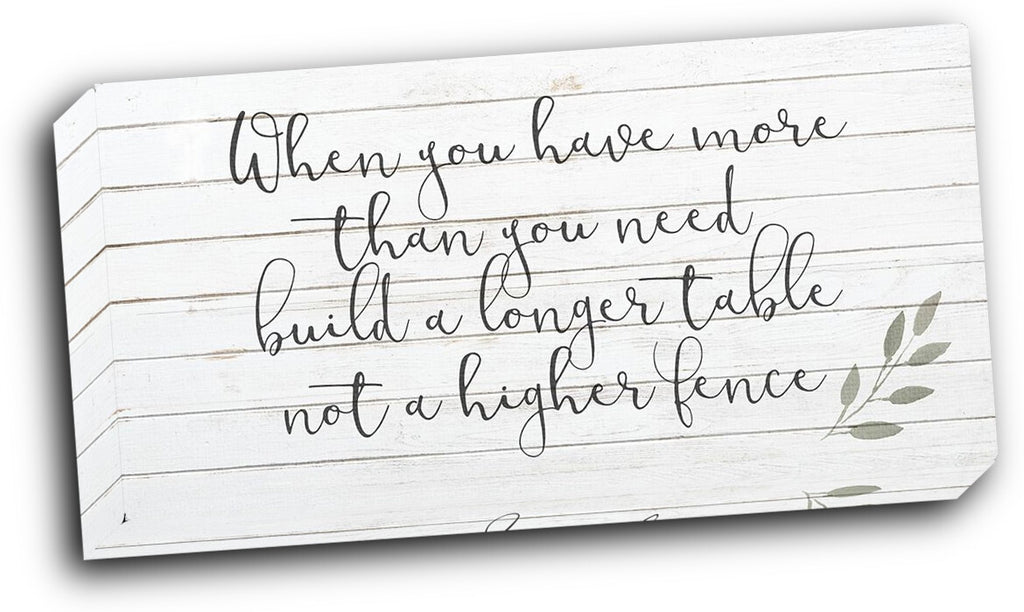 When you have more
than you need
build a longer table
not a higher fence